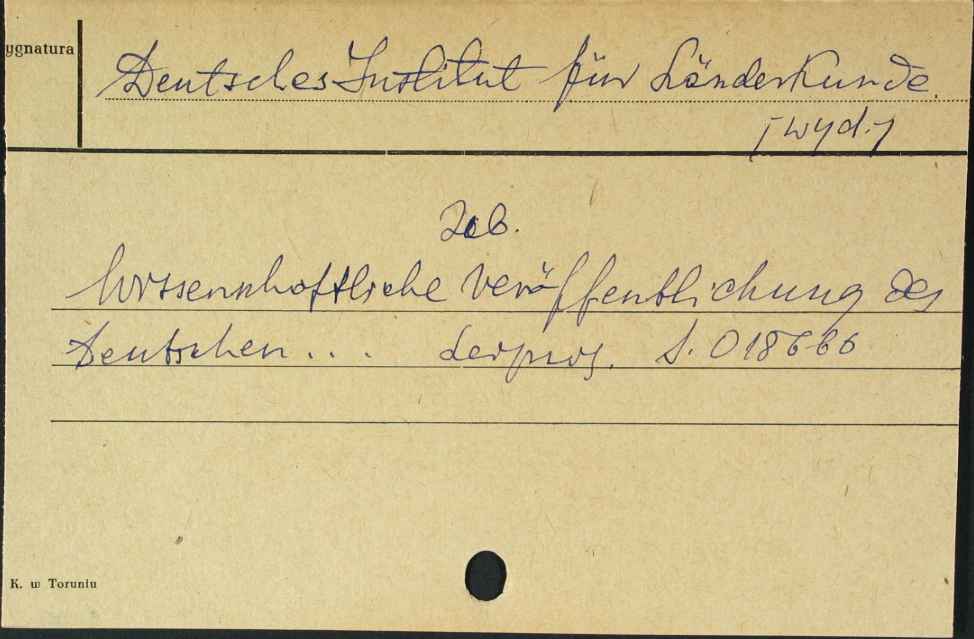 ygnatura
Deutsches Institut für Länderkunde.
[wyd.]
Zob.
Wissenschaftliche Veröffentlichung des
Deutschen ... Leipzig. S. 018686
K. w Toruniu